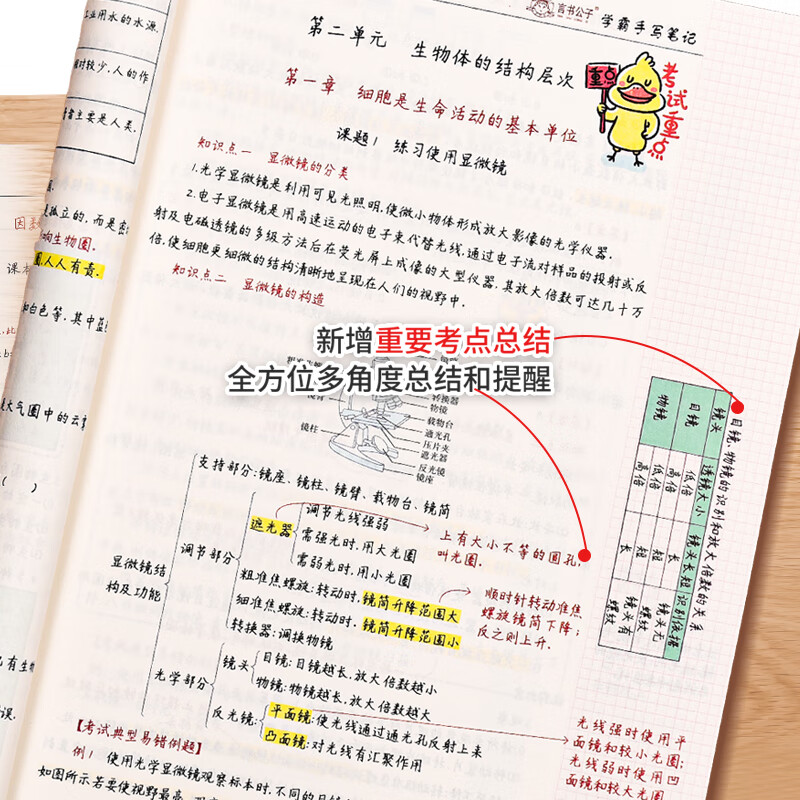 言书公子
学霸手写笔记
工业用水的水源.
相对较少,人的作
者主要是人类.
第二单元 生物体的结构层次
重点
考试重点
第一章 细胞是生命活动的基本单位
课题1 练习使用显微镜
知识点一 显微镜的分类
1.光学显微镜是利用可见光照明,使微小物体形成放大影像的光学仪器.
2.电子显微镜是用高速运动的电子束代替光线,通过电子流对样品的投射或反
射及电磁透镜的多级方法后在荧光屏上成像的大型仪器,其放大倍数可达几十万
倍,使细胞更细微的结构清晰地呈现在人们的视野中.
知识点二 显微镜的构造
孤立的,而是
响生物圈.
圈,人人有责.
课本
和白色等,其中
大气圈中的云
新增重要考点总结
全方位多角度总结和提醒
转换器
物镜
载物台
通光孔
压片夹
遮光器
反光镜
镜座
镜臂
镜柱
目镜、物镜的识别和放大倍数的关系
镜头 透镜大小 镜头长短 识别依据
目镜 低倍 长 镜头无螺纹
高倍 短
物镜 低倍 短 镜头有螺纹
高倍 长
显微镜结构及功能
支持部分:镜座、镜柱、镜臂、载物台、镜筒
调节部分
遮光器
调节光线强弱
需强光时,用大光圈
需弱光时,用小光圈
上有大小不等的圆孔,
叫光圈.
粗准焦螺旋:转动时,镜筒升降范围大
细准焦螺旋:转动时,镜筒升降范围小
顺时针转动准焦
螺旋镜筒下降;
反之则上升.
转换器:调换物镜
光学部分
镜头
目镜:目镜越长,放大倍数越小
物镜:物镜越长,放大倍数越大
反光镜:
平面镜:使光线通过通光孔反射上来
凸面镜:对光线有汇聚作用
光线强时使用平
面镜和较小光圈;
光线弱时使用凹
面镜和较大光圈
【考试典型易错例题】
例1 使用光学显微镜观察标本时,不同的目镜
如图所示若要使视野最亮